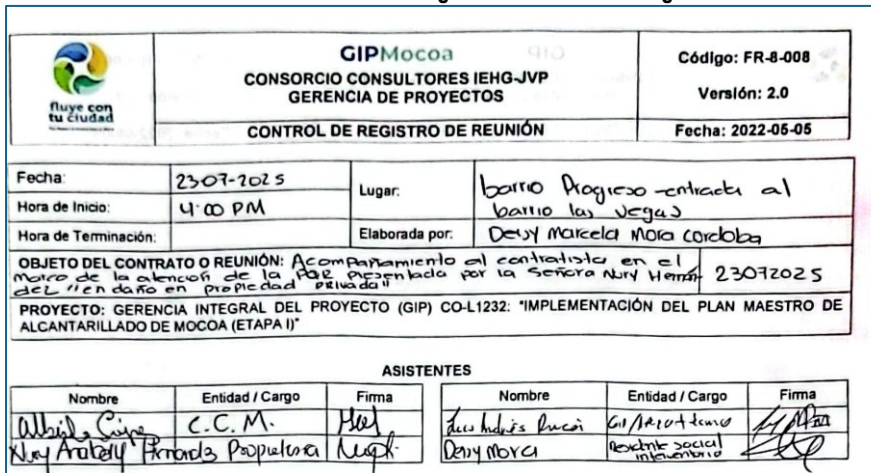 fluye con
tu ciudad
GIPMocoa
CONSORCIO CONSULTORES IEHG-JVP
GERENCIA DE PROYECTOS
CONTROL DE REGISTRO DE REUNIÓN
Código: FR-8-008
Versión: 2.0
Fecha: 2022-05-05
Fecha: 23-07-2025
Hora de Inicio: 4:00 PM
Hora de Terminación:
Lugar: barrio Progreso -entrada al
barrio las vegas
Elaborada por: Deisy Marcela Mora Cordoba
OBJETO DEL CONTRATO O REUNIÓN: Acompañamiento al contratista en el
marco de la atención de la PQR presentada por la Señora Nury Hernán
dez "en daño en propiedad privada"
23072025
PROYECTO: GERENCIA INTEGRAL DEL PROYECTO (GIP) CO-L1232: "IMPLEMENTACIÓN DEL PLAN MAESTRO DE
ALCANTARILLADO DE MOCOA (ETAPA I)"
ASISTENTES
Nombre Entidad / Cargo Firma
C.C.M.
Nury Hernandz Propietaria
Nombre Entidad / Cargo Firma
Luis Andrés
Deisy Mora Residente social
interventoria